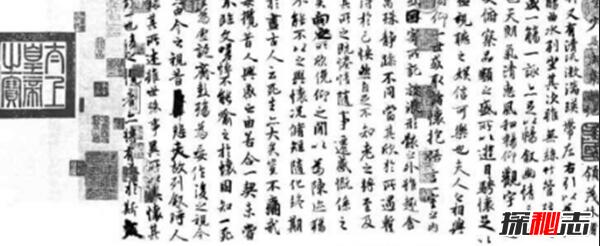 領茂林脩
又有清流激湍暎帶左右引以
曲水列坐其次雖無絲竹管弦
盛一觴一詠亦足以暢敘幽情
也天朗氣清惠風和暢仰觀宇
俯察品類之盛所以遊目騁懷足以
視聽之娛信可樂也夫人之相與
仰一世或取諸懷抱悟言一室之內
因寄所託放浪形骸之外雖趣舍
萬殊靜躁不同當其欣於所遇
得於己怏然自足不知老之將至及
其所之既惓情隨事遷感慨係之
矣向之所欣俛仰之閒以為陳迹
猶不能不以之興懷況脩短隨化終期
於盡古人云死生亦大矣豈不痛哉
每攬昔人興感之由若合一契未嘗
不臨文嗟悼不能喻之於懷固知一死
生為虛誕齊彭殤為妄作後之視今
亦由今之視昔悲夫故列敘時人
錄其所述雖世殊事異所以興懷其
致一也後之攬者亦將有感於斯
太上皇帝之寶
探秘志